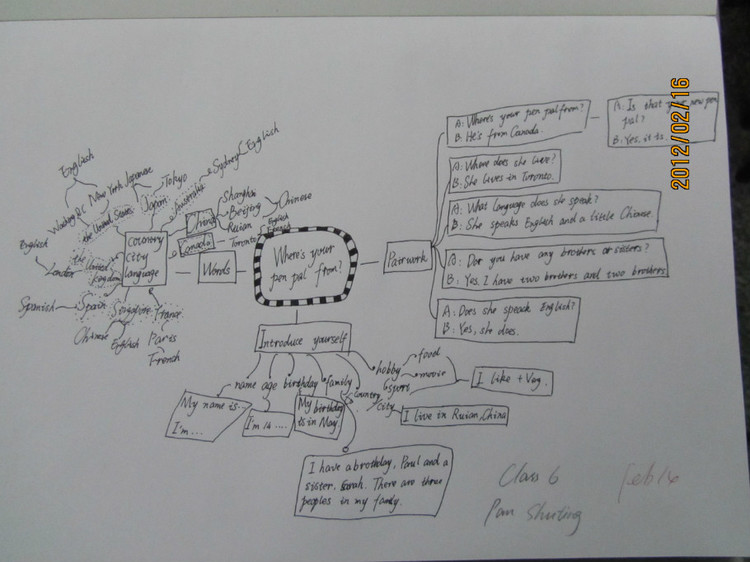 Where's your
pen pal from?
Words
country
city
language
English
Washing DC
New York
the United States
Japanese
Tokyo
Japan
Australia
Sydney
English
China
Shanghai
Beijing
Ruian
Chinese
Canada
Toronto
English
the
United
Kingdom
London
English
Spain
Spanish
Singapore
Chinese
English
France
Paris
French
Pairwork
A: Where's your pen pal from?
B: He's from Canada.
A: Is that your new pen
pal?
B: Yes, it is.
A: Where does she live?
B: She lives in Toronto.
A: What language does she speak?
B: She speaks English and a little Chinese.
A: Dor you have any brothers or sisters?
B: Yes, I have two brothers and two brothers
A: Does she speack English?
B: Yes, she does.
Introduce yourself
name
age
birthday
family
country
city
hobby
food
movie
sports
My name is...
I'm ....
I'm 14 ....
My birthday
is in May.
I have a brothday, Paul and a
sister, Sarah. There are three
peoples in my family.
I live in Ruian, China
I like + Ving.
Class 6
Pan Shuting
Feb 16
2012/02/16